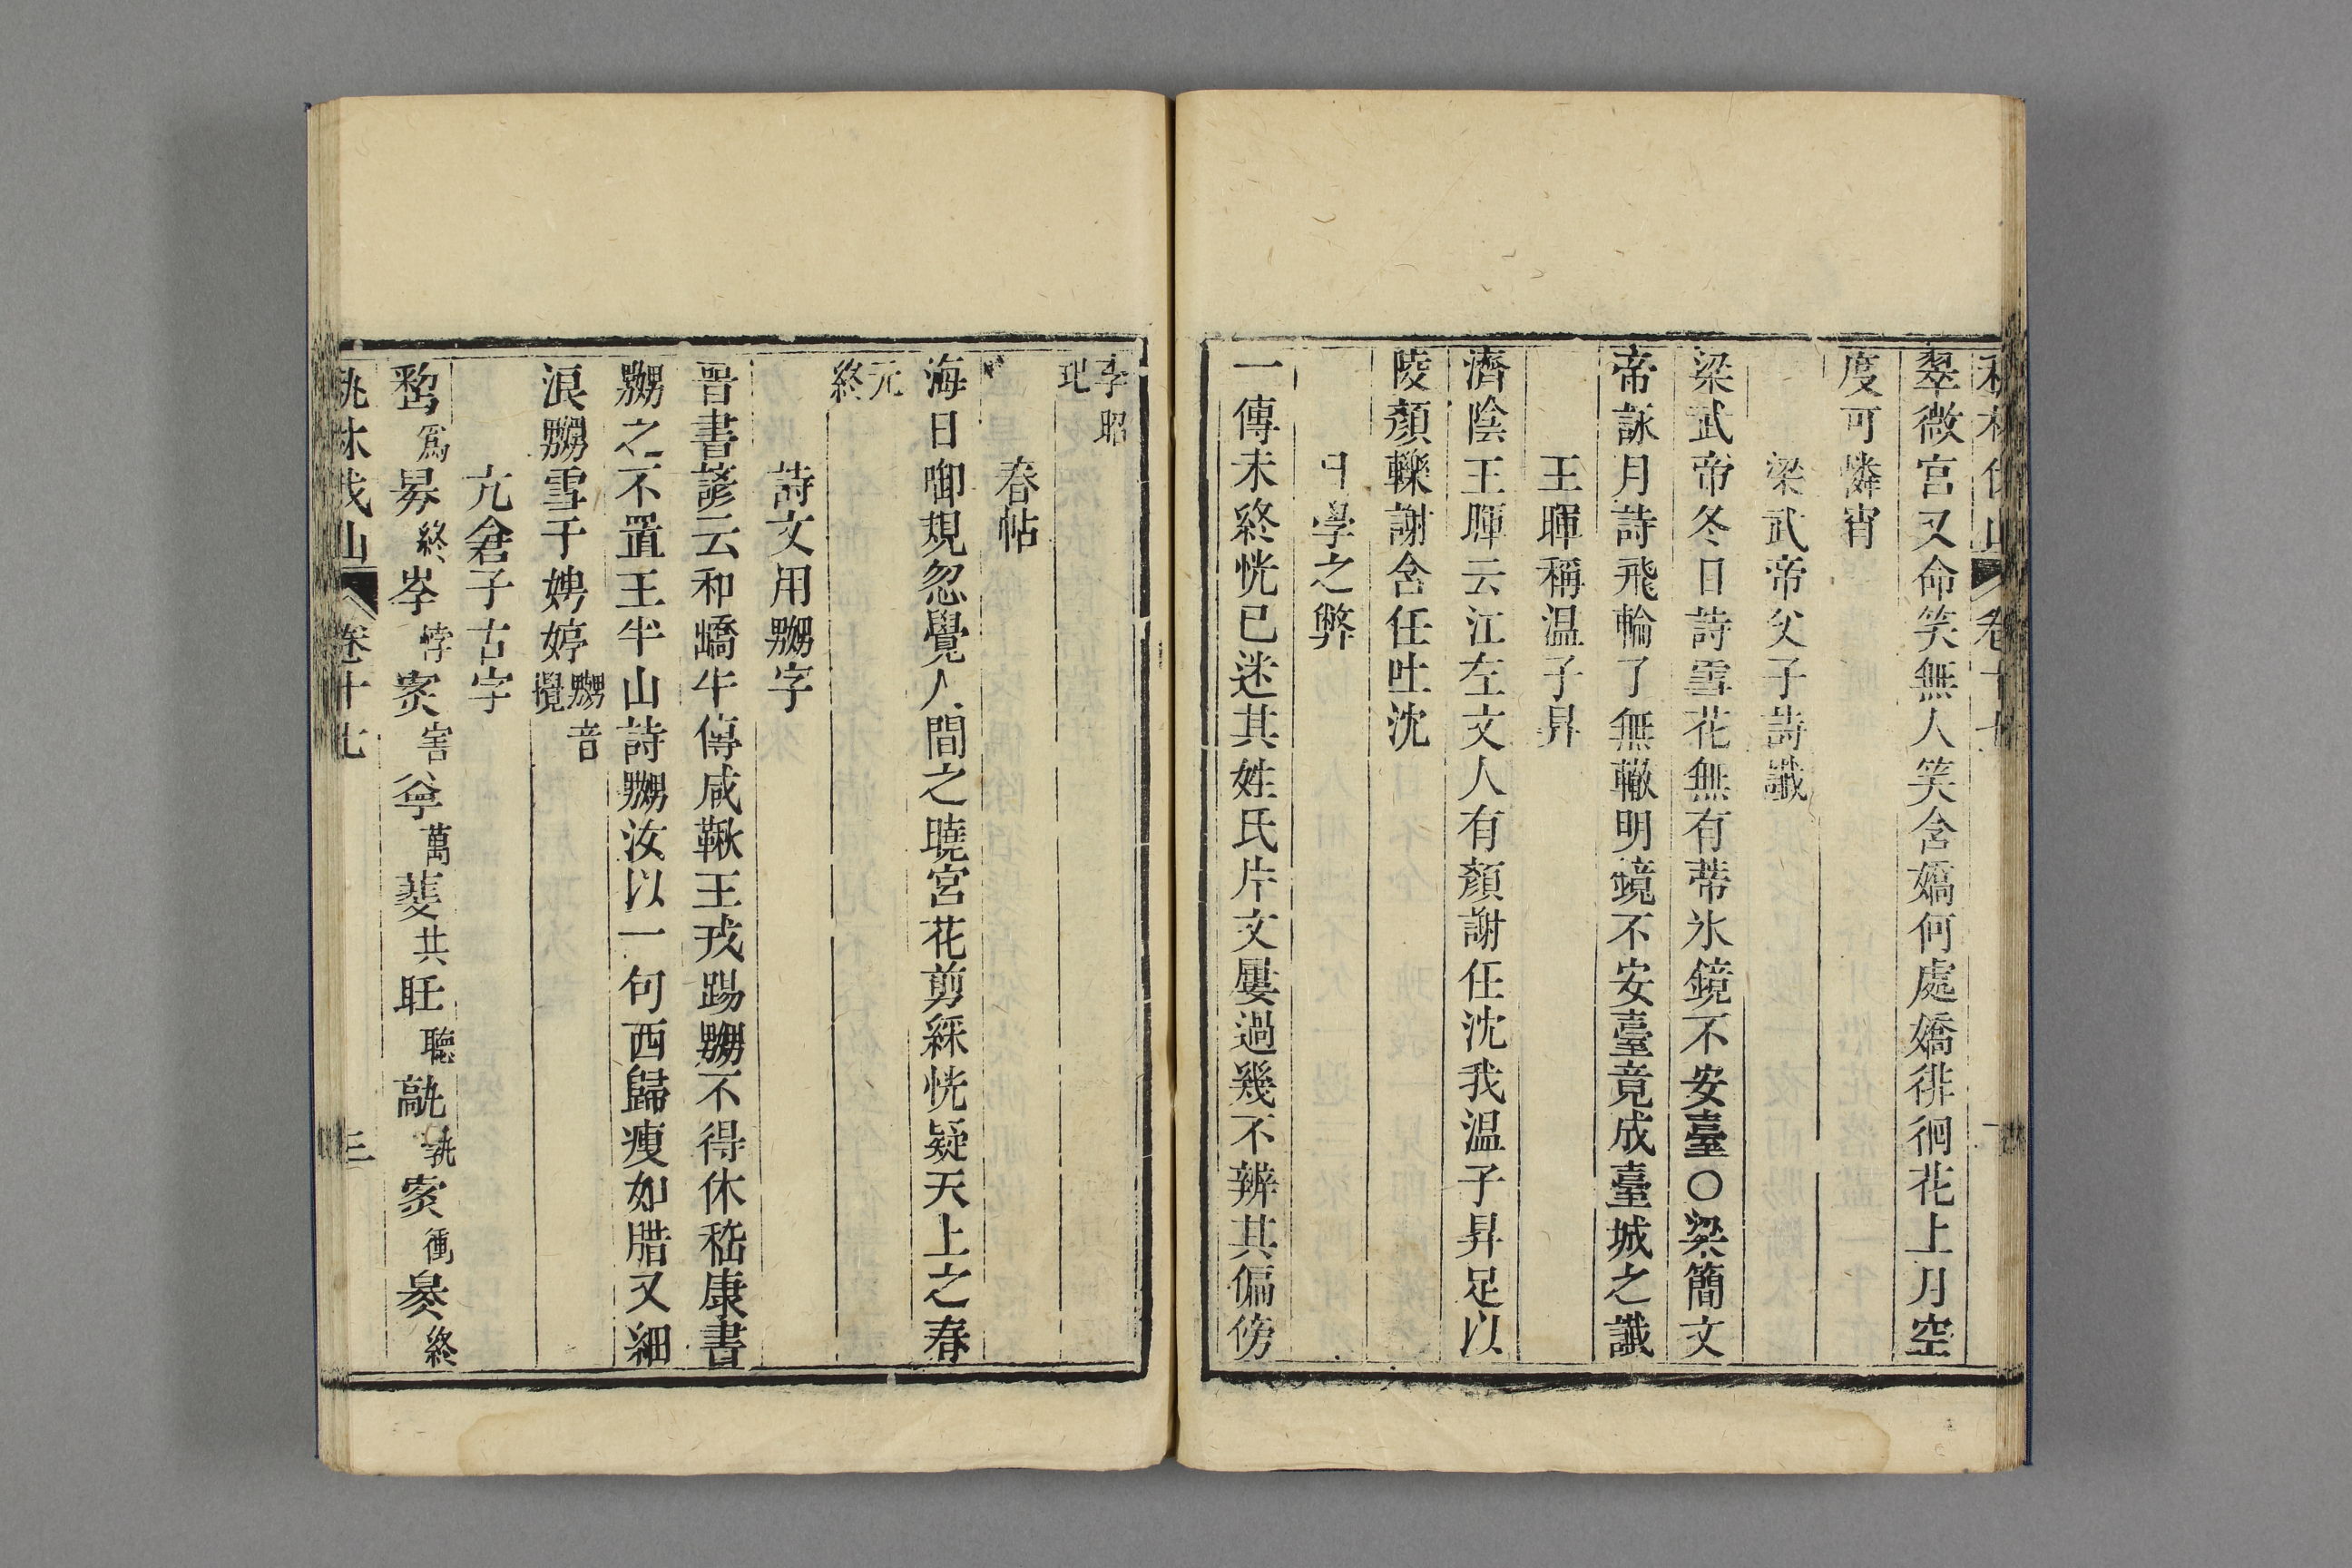 翠微宮又命笑無人笑含嬌何處嬌徘徊花上月空
度可憐宵
梁武帝父子詩讖
梁武帝冬日詩雪花無有蔕氷鏡不安臺○梁簡文
帝詠月詩飛輪了無轍明鏡不安臺竟成臺城之讖
王暉稱温子昇
濟陰王暉云江左文人有顏謝任沈我温子昇足以
陵顏轢謝含任吐沈
學之弊
一傳未終恍已迷其姓氏片文屢過幾不辨其偏傍
李昭
𤣱
春帖
海日啣規忽覺人間之曉宮花剪綵恍疑天上之春
元
終
詩文用嬲字
晋書諺云和嶠牛傳咸鞦王戎踢嬲不得休嵇康書
嬲之不置王半山詩嬲汝以一句西歸瘦如腊又細
浪嬲雪于娉婷嬲音
攪
亢倉子古字
爲 終 悖 害 萬 共 聽 孰 衝 終
卷十七 三